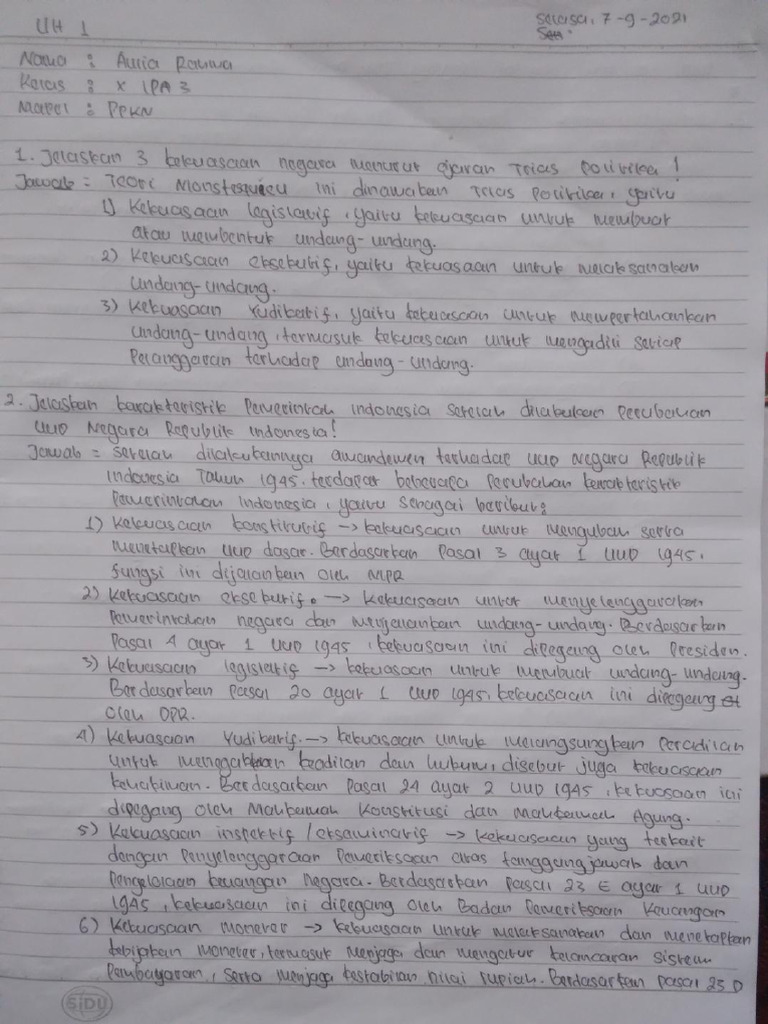 UH 1
Selasa, 7-9-2021
Nama : Aulia Rahma
Kelas : X IPA 3
Mapel : PPKN
1. Jelaskan 3 kekuasaan negara menurut ajaran Trias Politika!
Jawab = Teori Monstesquieu ini dinamakan Trias Politika, yaitu
1) Kekuasaan legislatif, yaitu kekuasaan untuk membuat
atau membentuk undang-undang.
2) Kekuasaan eksekutif, yaitu kekuasaan untuk melaksanakan
undang-undang.
3) Kekuasaan Yudikatif, yaitu kekuasaan untuk mempertahankan
undang-undang, termasuk kekuasaan untuk mengadili setiap
Pelanggaran terhadap undang-undang.
2. Jelaskan karakteristik Pemerintah Indonesia setelah dilakukan perubahan
UUD Negara Republik Indonesia!
Jawab = setelah dilakukannya amandemen terhadap UUD Negara Republik
Indonesia Tahun 1945, terdapat beberapa perubahan karakteristik
Pemerintahan Indonesia, yaitu sebagai berikut:
1) Kekuasaan konstitutif → kekuasaan untuk mengubah serta
menetapkan UUD dasar. Berdasarkan Pasal 3 ayat 1 UUD 1945,
fungsi ini dijalankan oleh MPR
2) Kekuasaan eksekutif. → Kekuasaan untuk menyelenggarakan
Pemerintahan negara dan menjalankan undang-undang. Berdasarkan
Pasal 4 ayat 1 UUD 1945, kekuasaan ini dipegang oleh Presiden.
3) Kekuasaan legislatif → kekuasaan untuk membuat undang-undang.
Berdasarkan pasal 20 ayat 1 UUD 1945, kekuasaan ini dipegang
oleh DPR.
4) Kekuasaan Yudikatif. → kekuasaan untuk melangsungkan Peradilan
untuk menegakkan keadilan dan hukum, disebut juga kekuasaan
kehakiman. Berdasarkan Pasal 24 ayat 2 UUD 1945, kekuasaan ini
dipegang oleh Mahkamah Konstitusi dan Mahkamah Agung.
5) Kekuasaan inspektif / eksaminatif → kekuasaan yang terkait
dengan Penyelenggaraan Pemeriksaan atas tanggungjawab dan
Pengelolaan keuangan negara. Berdasarkan Pasal 23 E ayat 1 UUD
1945, kekuasaan ini dipegang oleh Badan Pemeriksaan Keuangan
6) Kekuasaan moneter → kekuasaan untuk melaksanakan dan menetapkan
kebijakan moneter, termasuk menjaga dan mengatur kelancaran sistem
Pembayaran, serta menjaga kestabilan nilai rupiah. Berdasarkan Pasal 23 D
SiDU